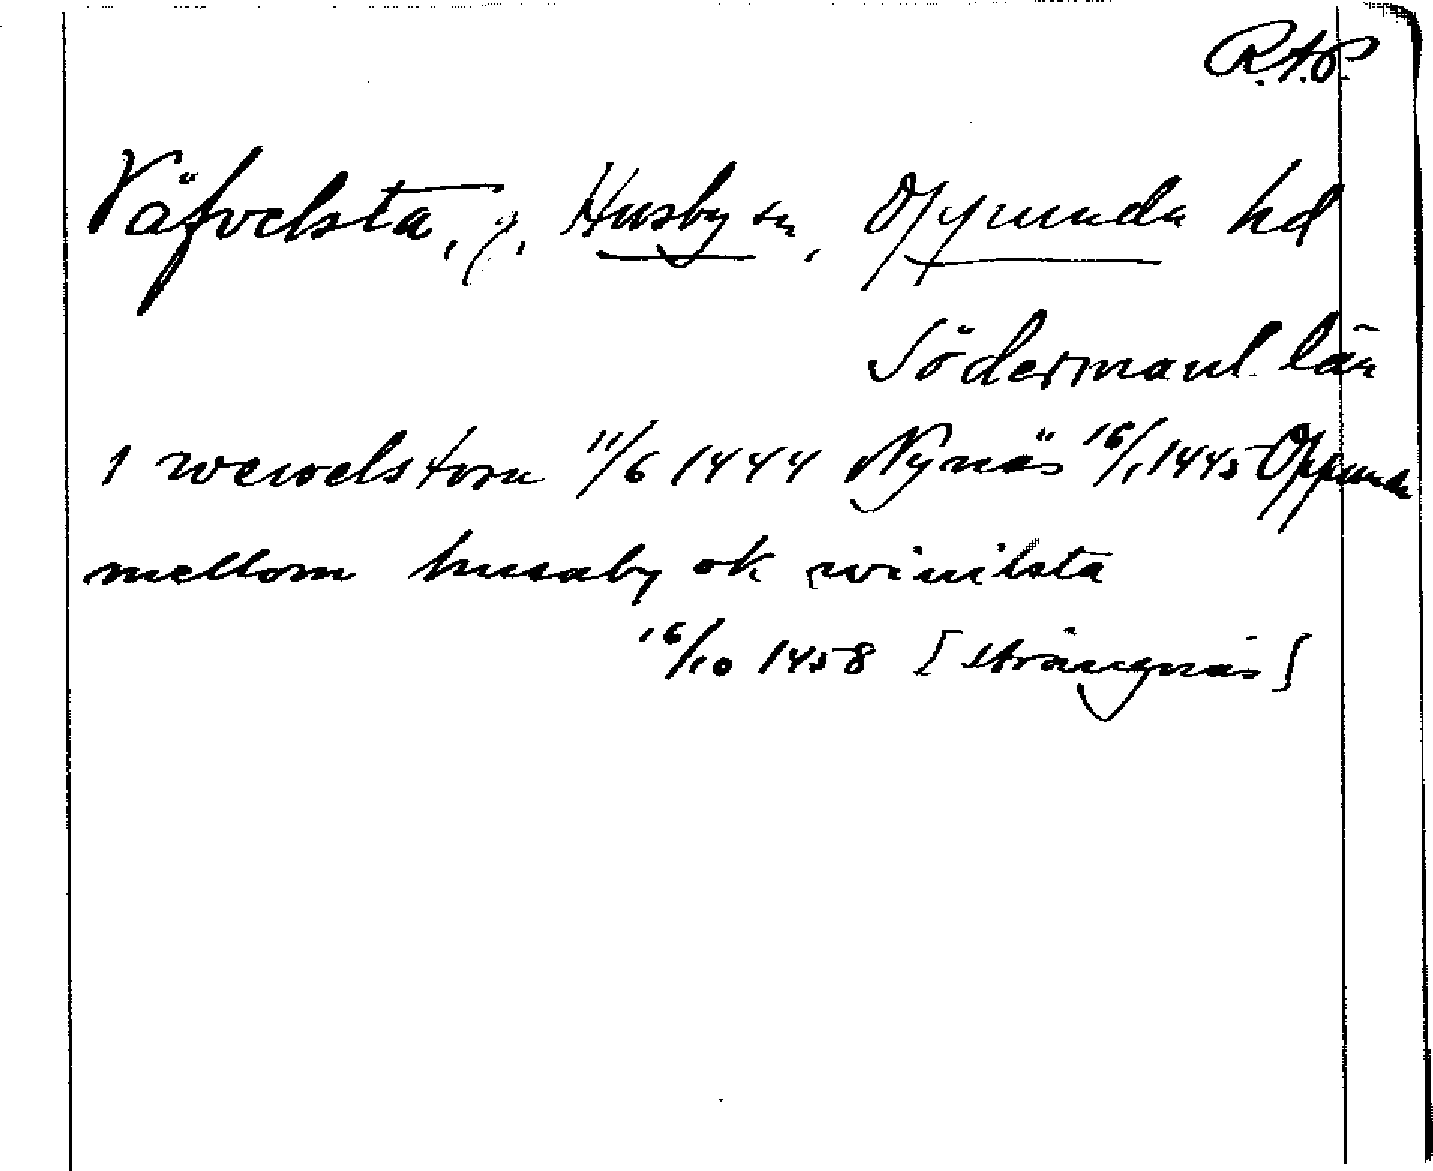 R.A.P.
Väfvelsta, g, Husby sn, Oppunda hd
Södermanl. län
I wewelstom 11/6 1444 Nynäs 16/1 1445 Oppunda
mellom husaby ok winilsta
16/10 1458 [Strängnäs]